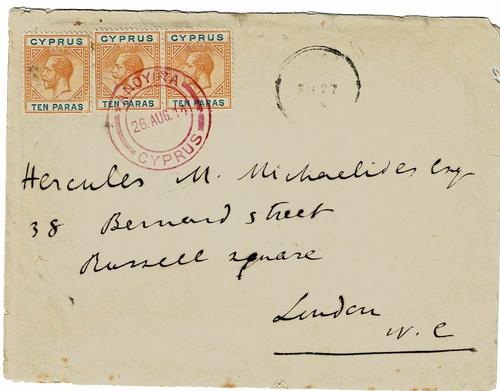 CYPRUS CYPRUS CYPRUS
TEN PARAS TEN PARAS TEN PARAS
ANOYIRA
26. AUG. 14
CYPRUS
Hercules M. Michaelides Esq
38 Bernard street
Russell square
London
W. C